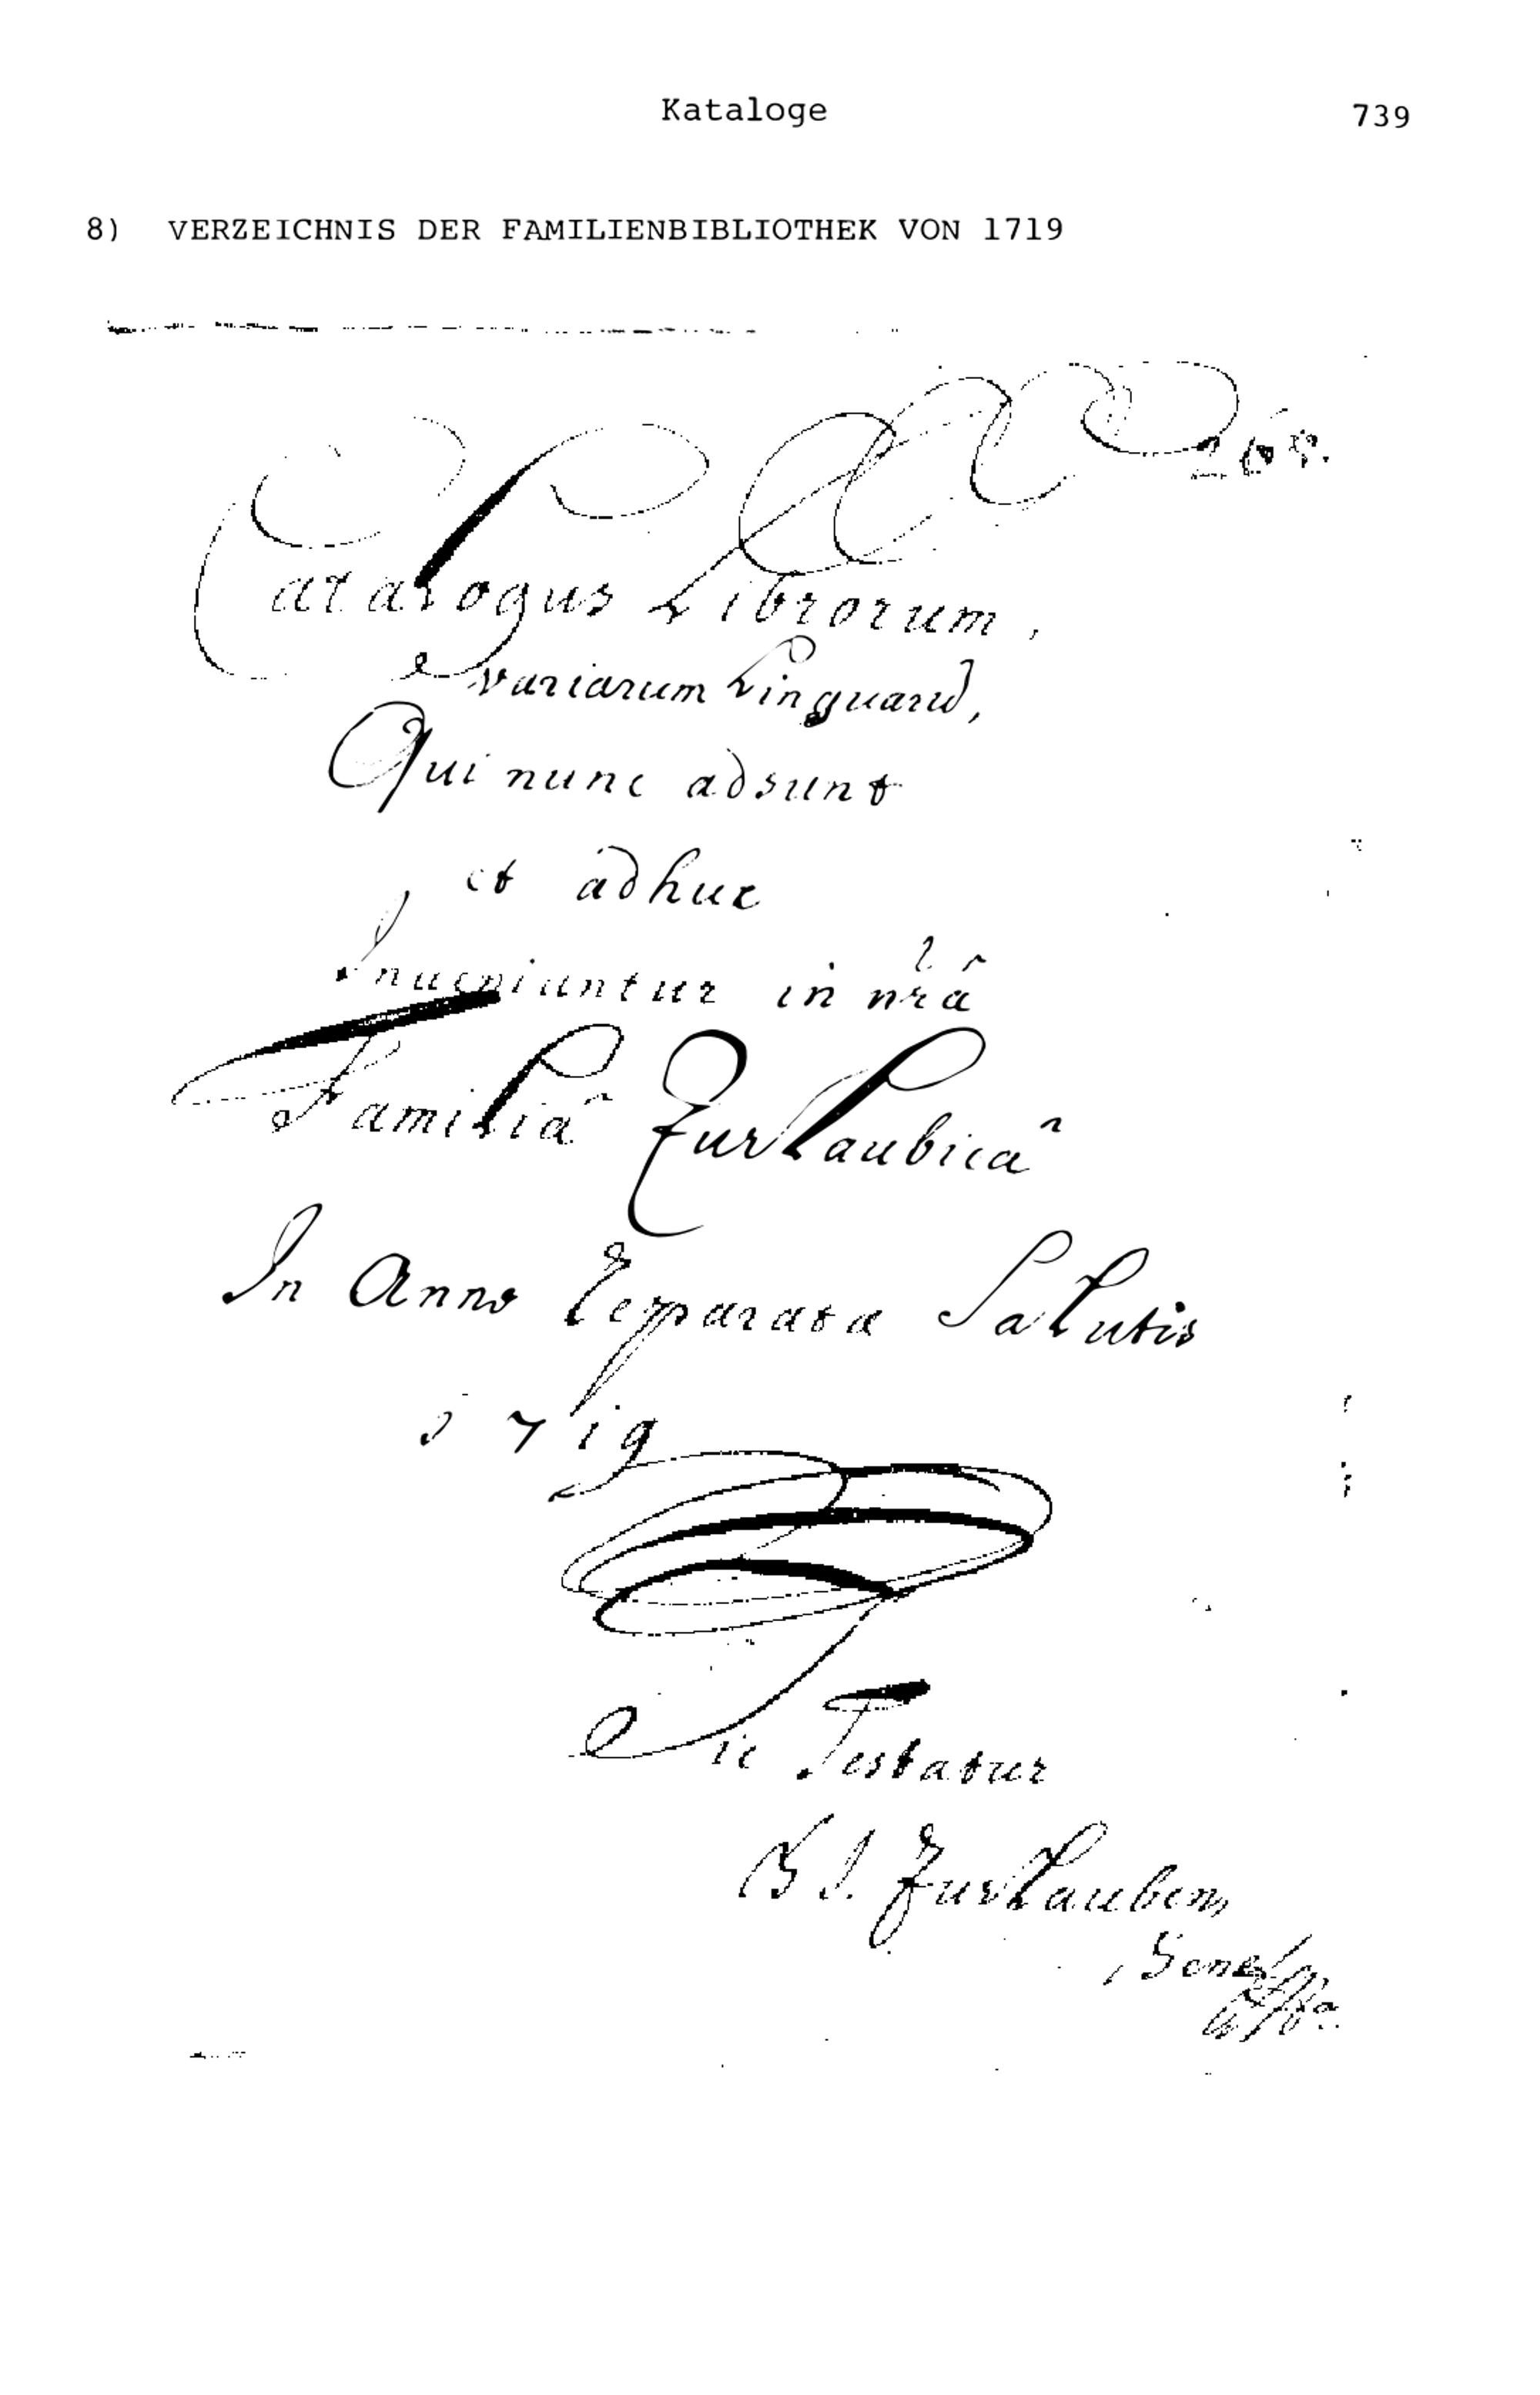 Kataloge 739
8) VERZEICHNIS DER FAMILIENBIBLIOTHEK VON 1719
Catalogus Librorum,
variarum Linguarū,
Qui nunc adsunt
et adhuc
Inueniuntur in nrâ
Familiâ ZurLaubicâ
In Anno Reparata Salutis
1719
Sic Testatur
B J. ZurLauben,